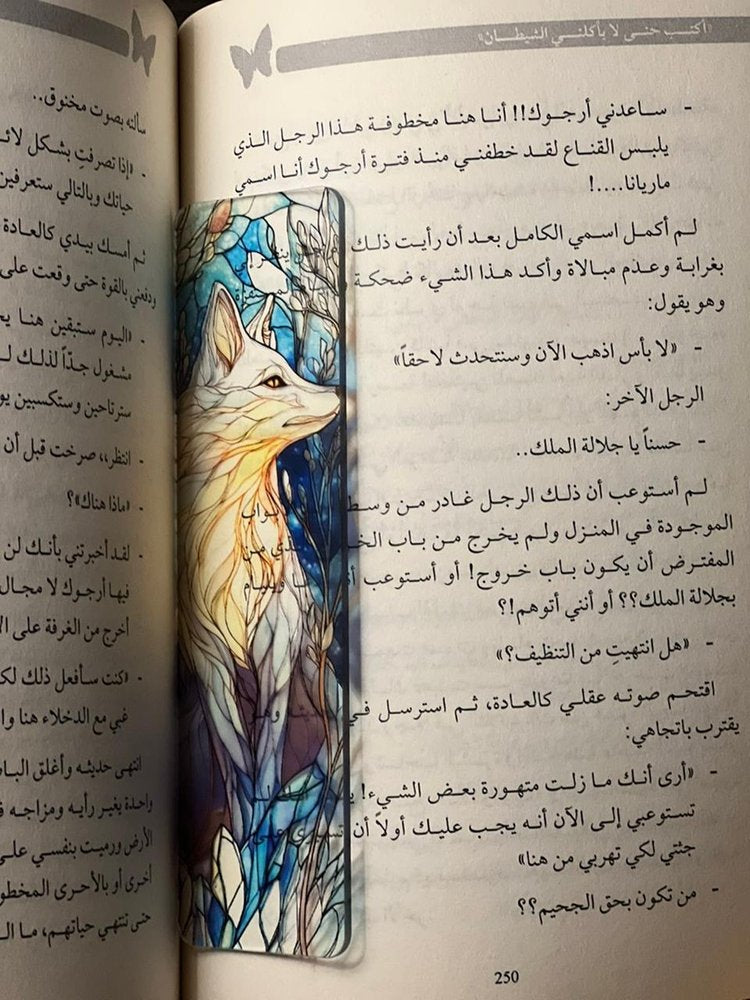 «أكتب حتى لا يأكلني الشيطان»
- ساعدني أرجوك!! أنا هنا مخطوفة هذا الرجل الذي
يلبس القناع لقد خطفني منذ فترة أرجوك أنا اسمي
ماريانا....!
لم أكمل اسمي الكامل بعد أن رأيت ذلك
بغرابة وعدم مبالاة وأكد هذا الشيء ضحكة
وهو يقول:
- «لا بأس اذهب الآن وسنتحدث لاحقاً»
الرجل الآخر:
- حسناً يا جلالة الملك..
لم أستوعب أن ذلك الرجل غادر من وسط
الموجودة في المنزل ولم يخرج من باب من
المفترض أن يكون باب خروج! أو أستوعب
بجلالة الملك؟؟ أو أنني أتوهم!؟
- «هل انتهيتِ من التنظيف؟»
اقتحم صوته عقلي كالعادة، ثم استرسل في وهو
يقترب باتجاهي:
- «أرى أنك ما زلت متهورة بعض الشيء!
تستوعبي إلى الآن أنه يجب عليك أولاً أن تسيري على
جثتي لكي تهربي من هنا»
- من تكون بحق الجحيم؟؟
250
سألته بصوت مخنوق..
- «إذا تصرفتِ بشكل
حياتك وبالتالي ستعرفين
ثم أمسك بيدي كالعادة
ودفعني بالقوة حتى وقعت على
- «اليوم ستبقين هنا
مشغول جدّاً لذلك
سترتاحين وستكسبين
- انتظر،، صرخت قبل أن
- «ماذا هناك»؟
- لقد أخبرتني بأنك لن
فيها أرجوك لا مجال
أخرج من الغرفة على
- «كنت سأفعل ذلك
غبي مع الدخلاء هنا
انتهى حديثه وأغلق
واحدة يغير رأيه ومزاجه
الأرض ورميت بنفسي على
أخرى أو بالأحرى
حتى تنتهي حياتهم، ما